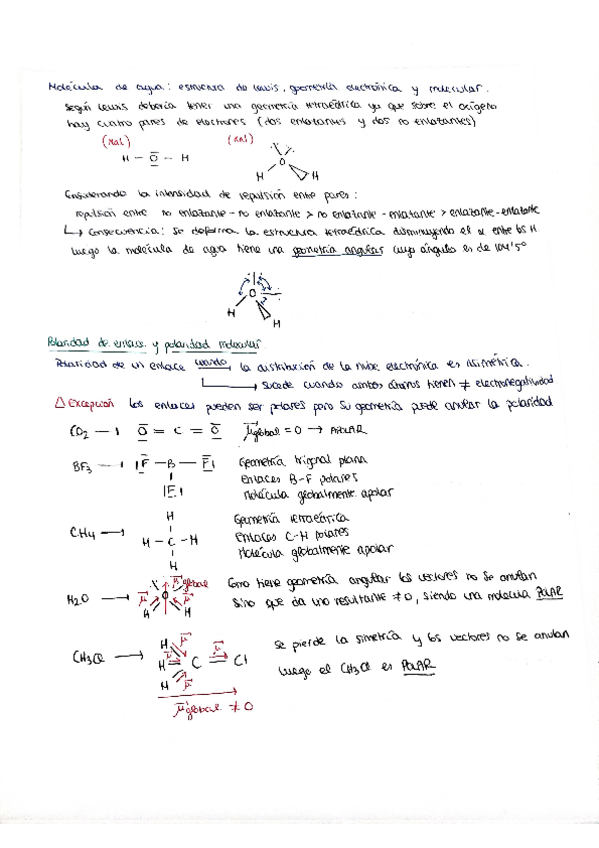 Molécula de agua: estructura de Lewis, geometría electrónica y molecular.
Según Lewis debería tener una geometría tetraédrica ya que sobre el oxígeno
hay cuatro pares de electrones (dos enlazantes y dos no enlazantes)
(mal) (mal)
H - O - H
O
H H
Considerando la intensidad de repulsión entre pares:
repulsión entre no enlazante - no enlazante > no enlazante - enlazante > enlazante - enlazante
↳ Consecuencia: Se deforma la estructura tetraédrica disminuyendo el α entre los H
luego la molécula de agua tiene una geometría angular cuyo ángulo es de 104'5º
O
H
H
Polaridad de enlace y polaridad molecular
Polaridad de un enlace cuando la distribución de la nube electrónica es asimétrica.
↳ sucede cuando ambos átomos tienen ≠ electronegatividad
⚠ Excepción los enlaces pueden ser polares pero su geometría puede anular la polaridad
CO2 → O = C = O μ global = 0 → APOLAR
BF3 → |F - B - F| Geometría trigonal plana
enlaces B-F polares
|F| Molécula globalmente apolar
H Geometría tetraédrica
CH4 → H - C - H Enlaces C-H polares
H Molécula globalmente apolar
μ global Como tiene geometría angular los vectores no se anulan
H2O → μ O μ sino que da una resultante ≠ 0, siendo una molécula POLAR
H H
H μ se pierde la simetría y los vectores no se anulan
CH3Cl → H μ C μ Cl
H μ luego el CH3Cl es POLAR
μ global ≠ 0